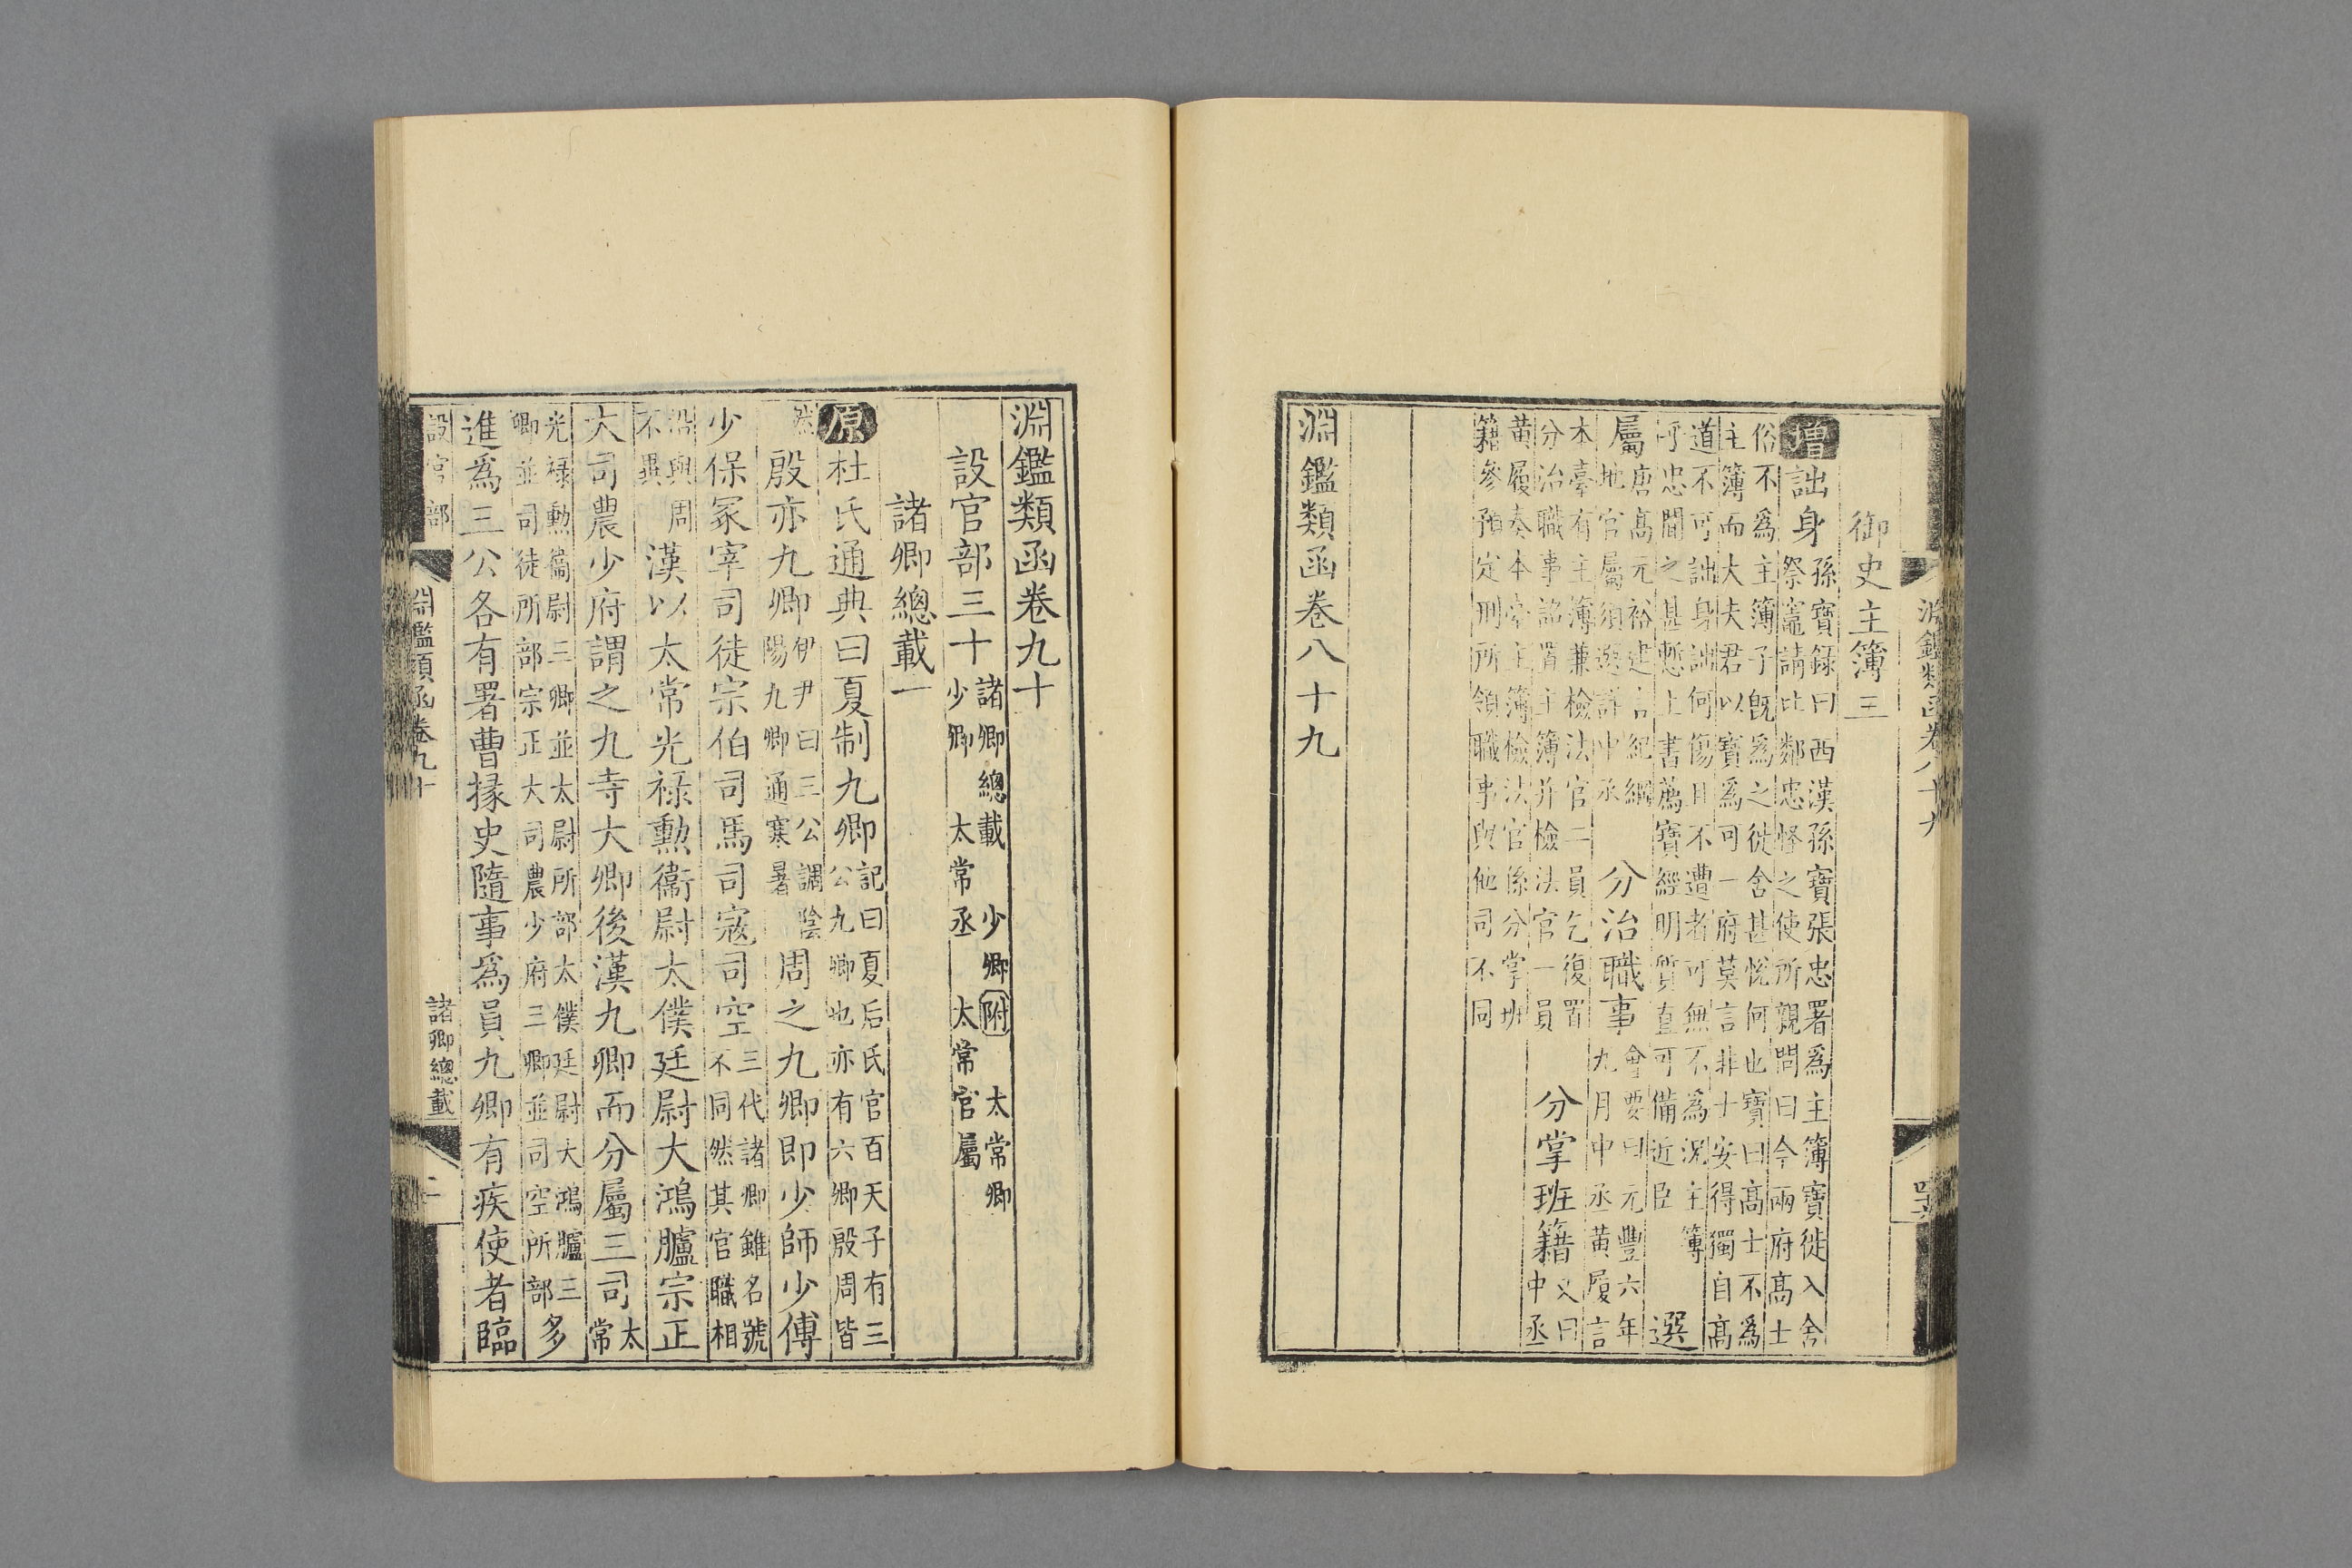 淵鑑類函卷八十九
御史主簿三
增詘身孫寶錄曰西漢孫寶張忠署爲主簿寶徙入舍
祭竈請比鄰忠怪之使所親問曰今兩府高士
俗不爲主簿子既爲之徙舍甚悅何也寶曰高士不爲
主簿而大夫君以寶爲可一府莫言非士安得獨自高
道不可詘身詘何傷且不遭者可無不爲况主簿
乎忠聞之甚慙上書薦寶經明質直可備近臣選
屬唐高元裕建言紀綱
地官屬須選詳中丞
分治職事會要曰元豐六年
九月中丞黃履言
本臺有主簿兼檢法官二員乞復置
分治職事詔置主簿并檢法官一員
分掌班籍又曰
中丞
黃履奏本臺主簿檢法官係分掌班
籍參預定刑所領職事與他司不同
淵鑑類函卷八十九
淵鑑類函卷九十
設官部三十諸卿總載 少卿附 太常卿
少卿 太常丞 太常官屬
諸卿總載一
原杜氏通典曰夏制九卿記曰夏后氏官百天子有三
公九卿也亦有六卿殷周皆
然殷亦九卿伊尹曰三公調陰
陽九卿通寒暑周之九卿即少師少傅
少保冢宰司徒宗伯司馬司寇司空三代諸卿雖名號
不同然其官職相
沿與周
不異漢以太常光祿勲衞尉太僕廷尉大鴻臚宗正
大司農少府謂之九寺大卿後漢九卿而分屬三司太
常
光祿勲衞尉三卿並太尉所部太僕廷尉大鴻臚三
卿並司徒所部宗正大司農少府三卿並司空所部多
進爲三公各有署曹掾史隨事爲員九卿有疾使者臨
設官部
淵鑑類函卷九十
諸卿總載